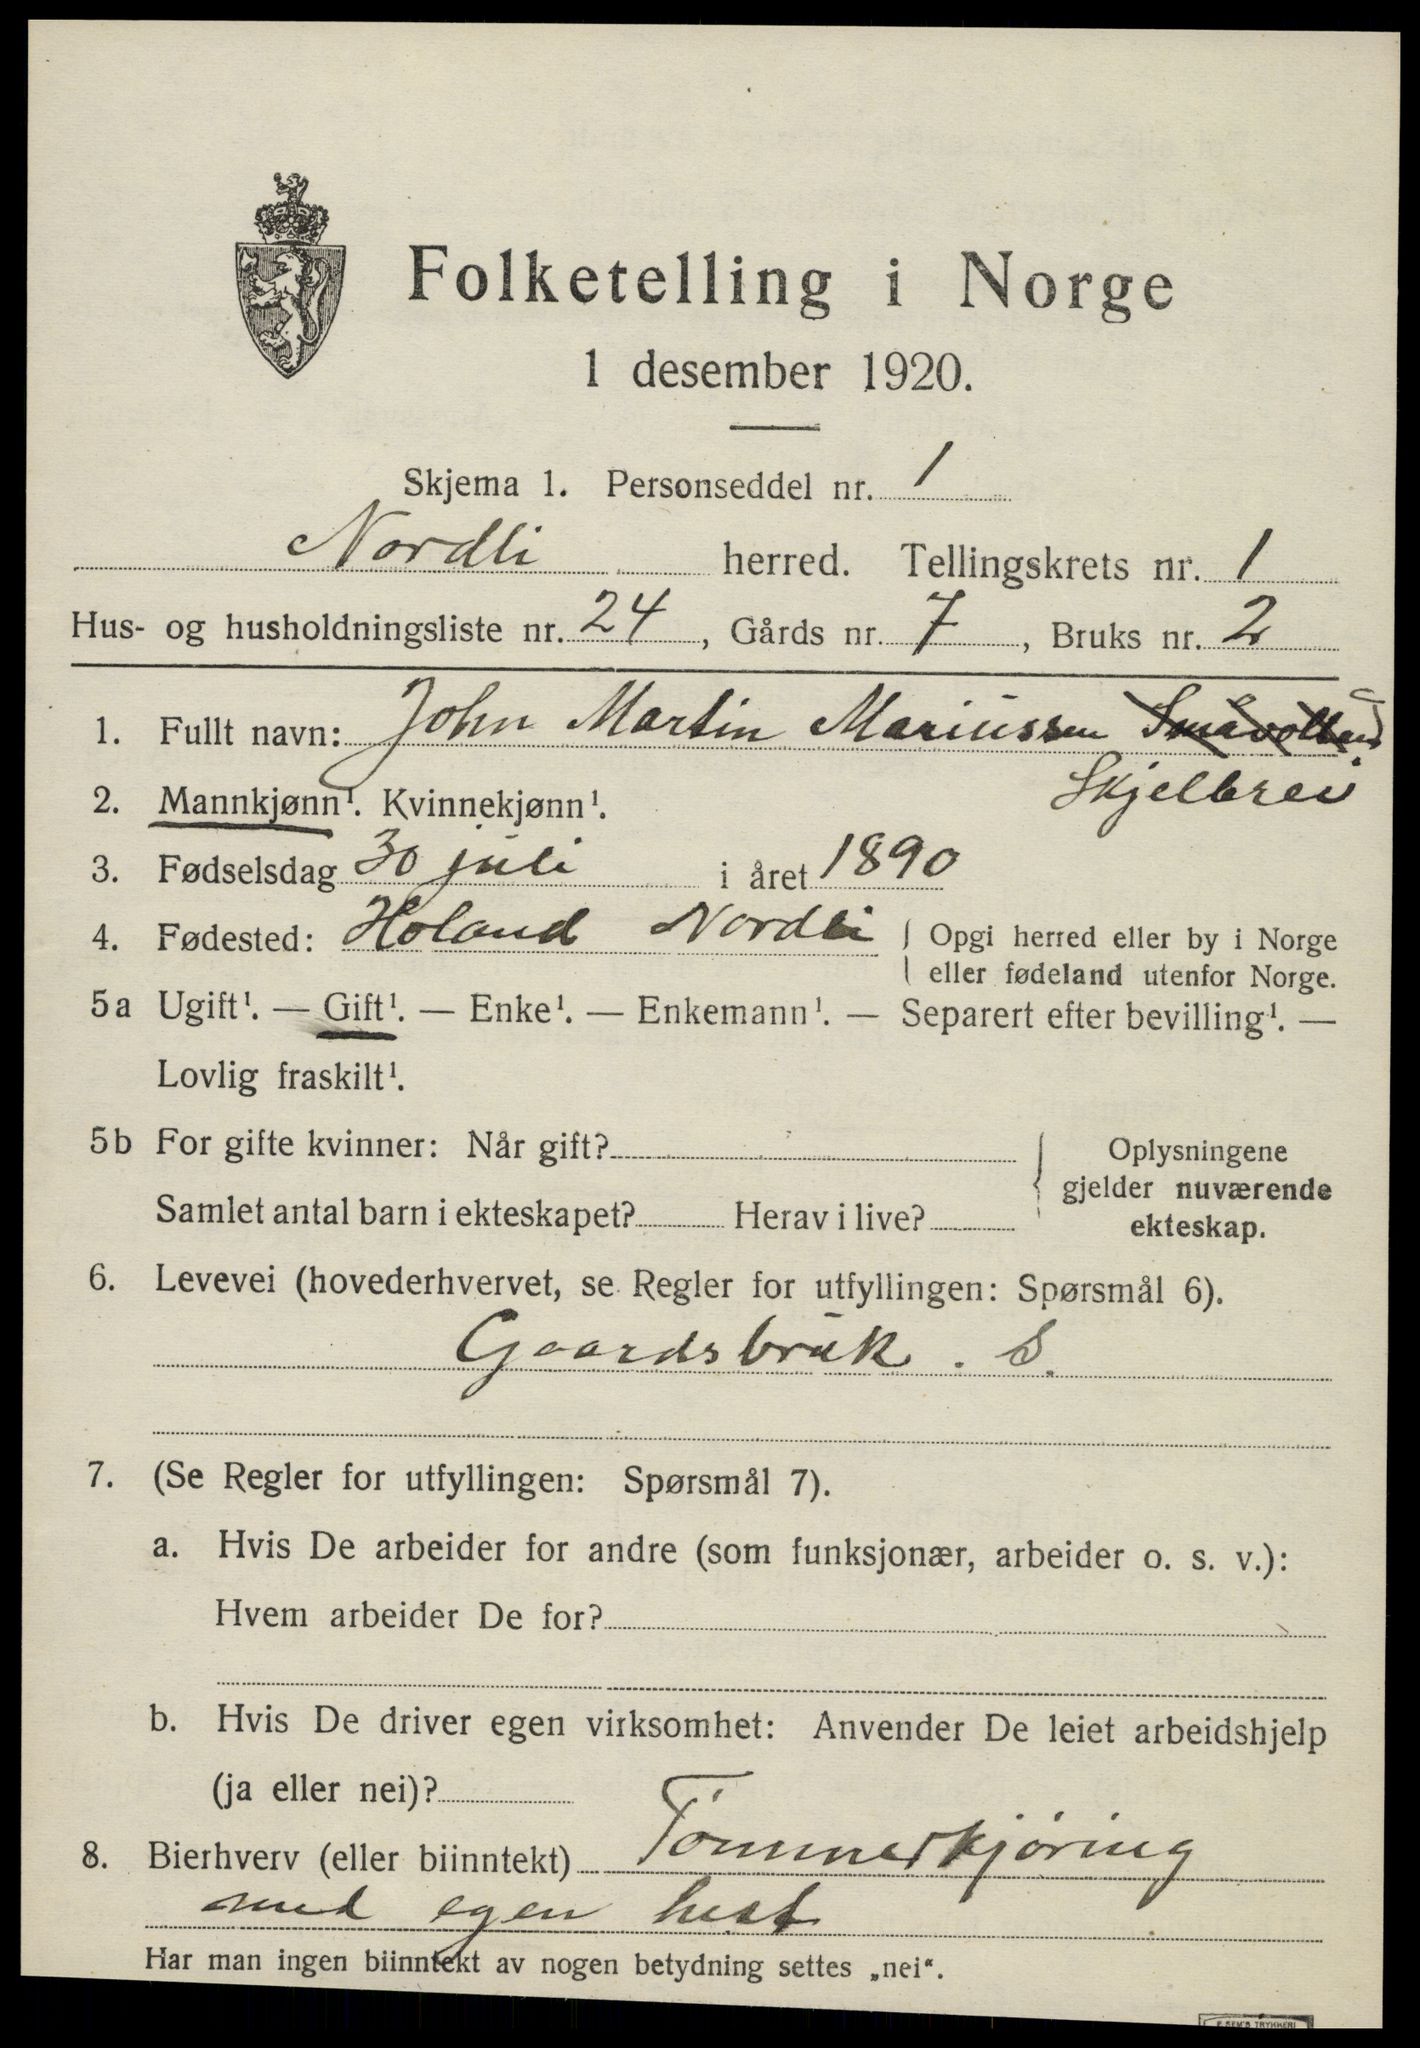 Folketelling i Norge
1 desember 1920.
Skjema 1. Personseddel nr. 1
Nordli herred. Tellingskrets nr. 1
Hus- og husholdningsliste nr. 24, Gårds nr. 7, Bruks nr. 2
1. Fullt navn: John Martin Mariussen
Skjelbrei
2. Mannkjønn¹. Kvinnekjønn¹.
3. Fødselsdag 30 juli i året 1890
4. Fødested: Holand Nordli { Opgi herred eller by i Norge
eller fødeland utenfor Norge.
5a Ugift¹. — Gift¹. — Enke¹. — Enkemann¹. — Separert efter bevilling¹. —
Lovlig fraskilt¹.
5b For gifte kvinner: Når gift? { Oplysningene
gjelder nuværende
Samlet antal barn i ekteskapet? Herav i live?
ekteskap.
6. Levevei (hovederhvervet, se Regler for utfyllingen: Spørsmål 6).
Gaardsbruk. S.
7. (Se Regler for utfyllingen: Spørsmål 7).
a. Hvis De arbeider for andre (som funksjonær, arbeider o. s. v.):
Hvem arbeider De for?
b. Hvis De driver egen virksomhet: Anvender De leiet arbeidshjelp
(ja eller nei)?
8. Bierhverv (eller biinntekt) Tømmerkjøring
med egen hest
Har man ingen biinntekt av nogen betydning settes „nei“.